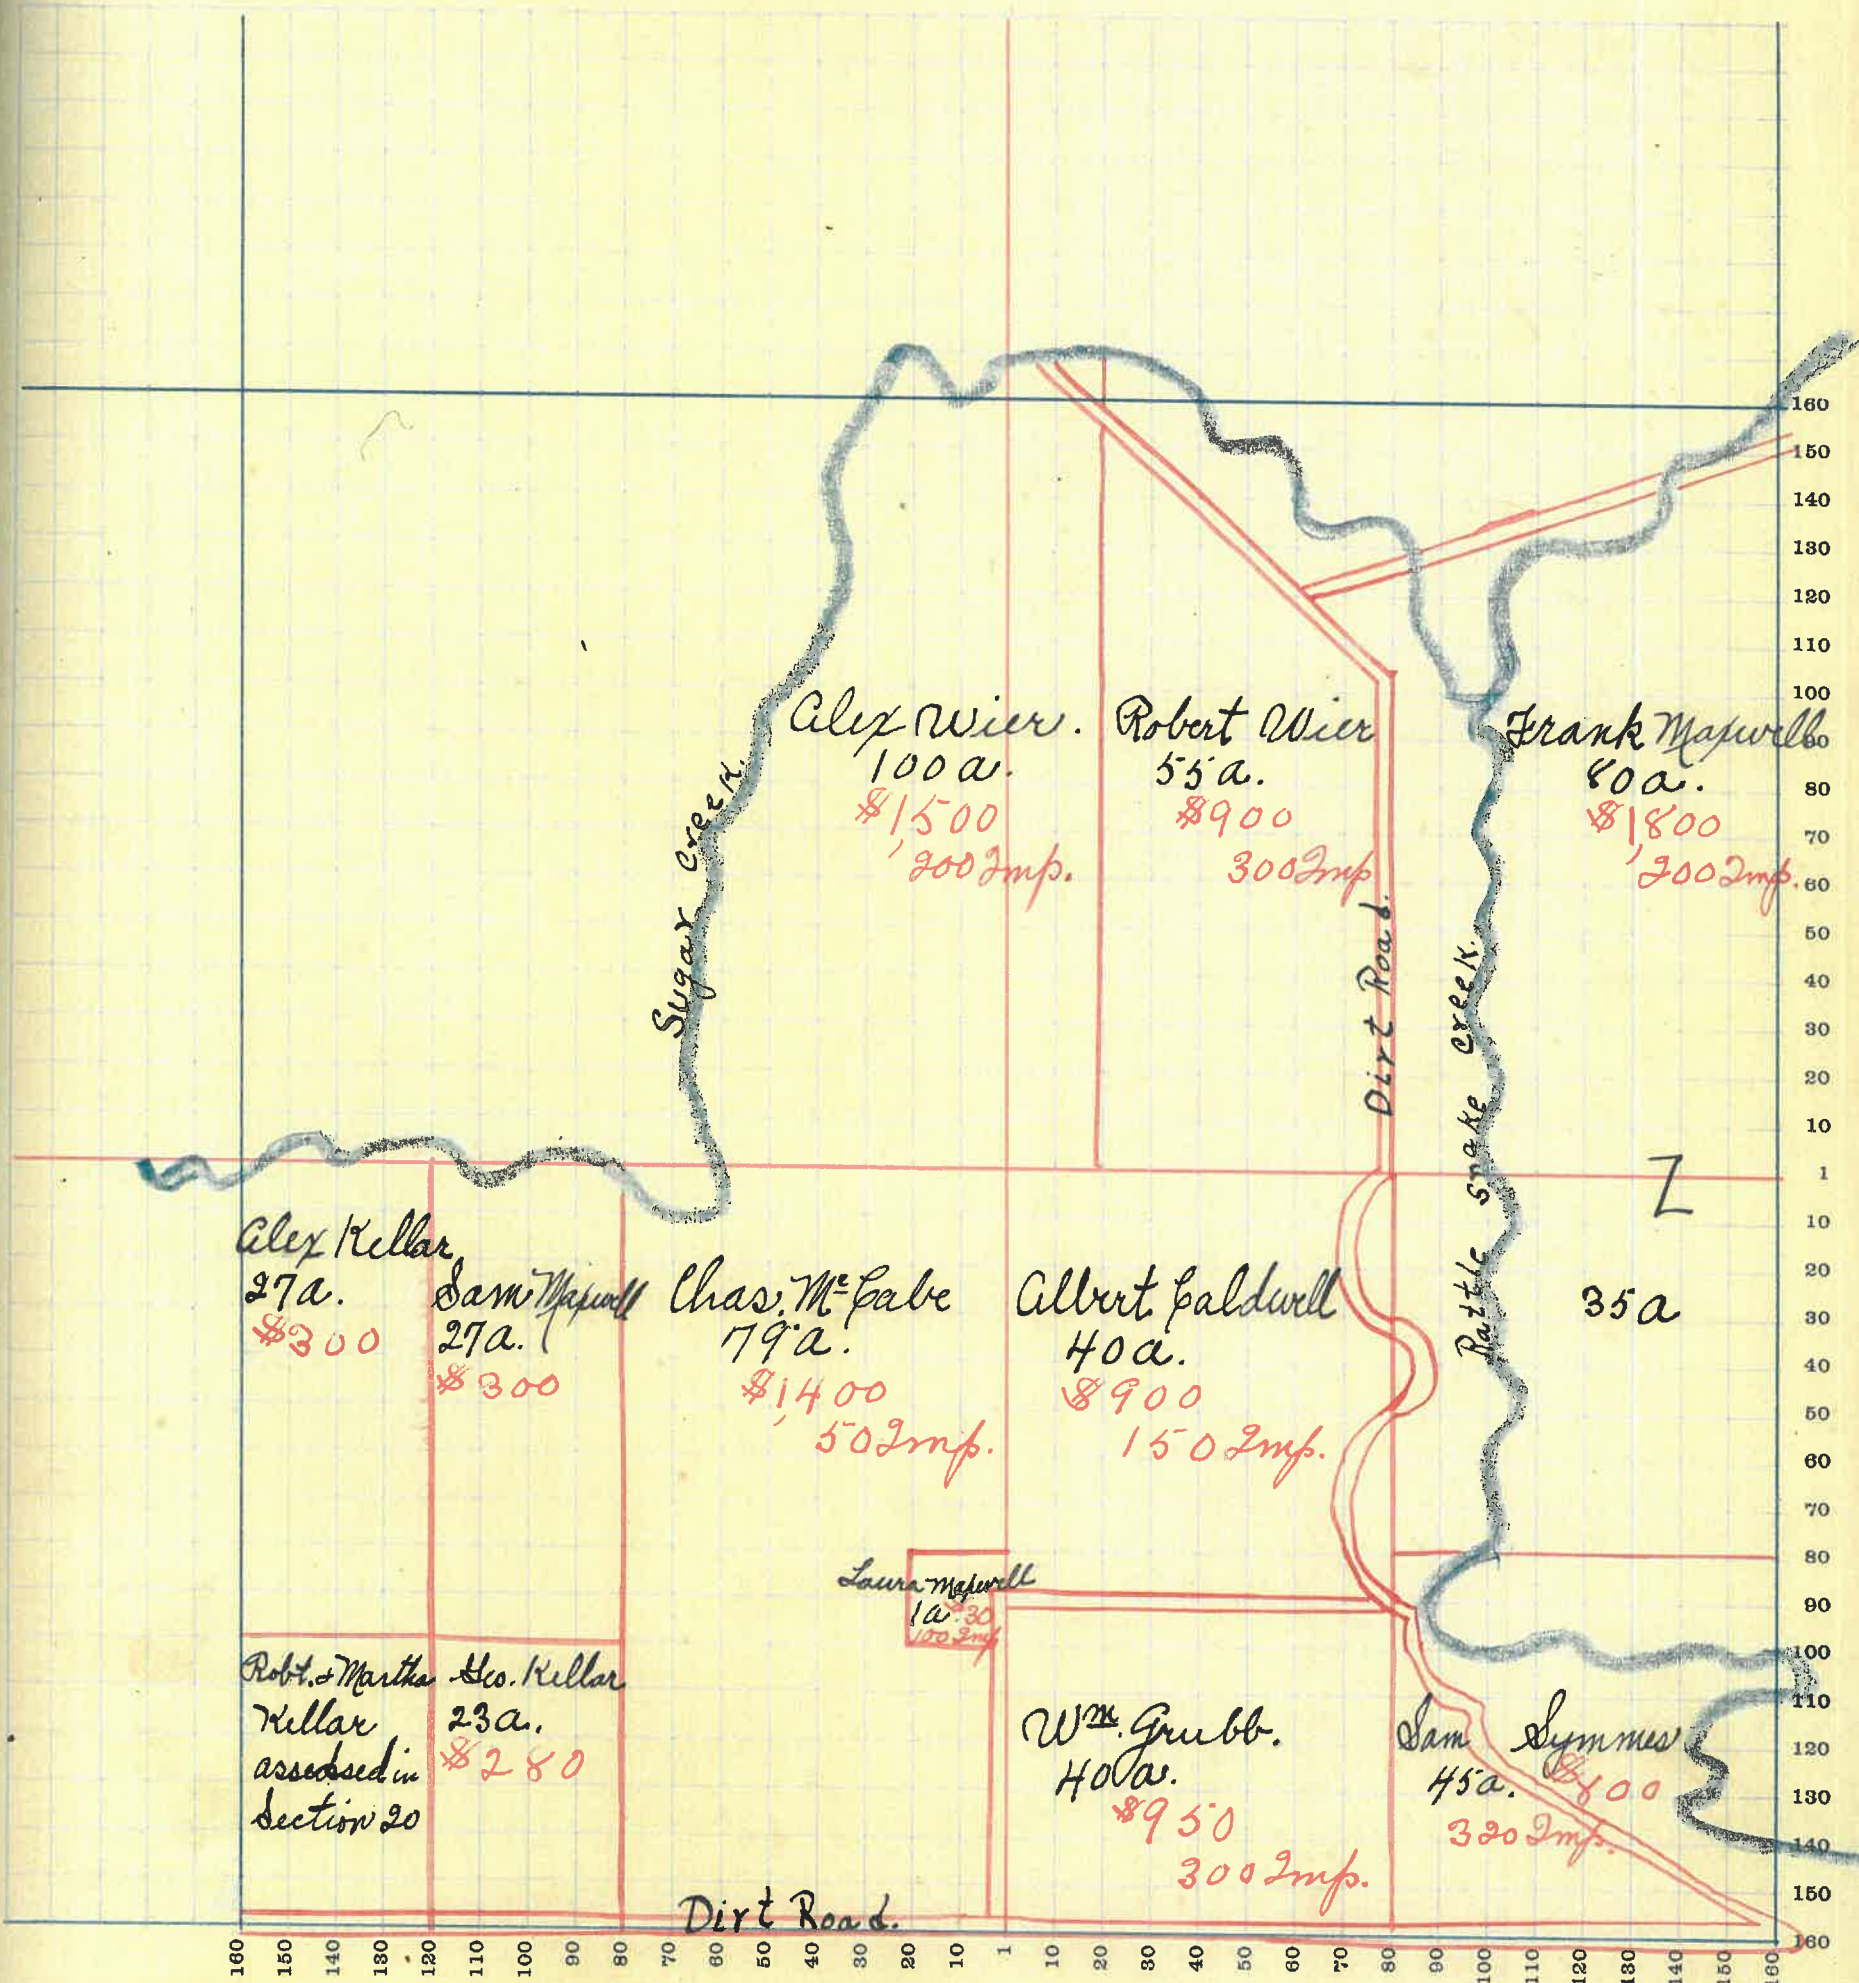 160
150
140
130
120
110
100
90
80
70
60
50
40
30
20
10
1
10
20
30
40
50
60
70
80
90
100
110
120
130
140
150
160
Alex Wier.
100a.
$1500
200 Imp.
Robert Wier
55a.
$900
300 Imp
Frank Maxwell
80a.
$1,800
200 Imp.
Sugar Creek.
Dirt Road.
Rattle snake Creek.
Alex Kellar
27a.
$300
Sam Maxwell
27a.
$300
Chas. Mc Cabe
79a.
$1,400
50 Imp.
Albert Caldwell
40a.
$900
150 Imp.
35a
Laura Maxwell
1a. $30
100 Imp
Robt. & Martha
Kellar
assessed in
Section 20
Geo. Kellar
23a.
$280
Wm. Grubb.
40a.
$950
300 Imp.
Sam Symmes
45a.
320 Imp.
Dirt Road.
160 150 140 130 120 110 100 90 80 70 60 50 40 30 20 10 1 10 20 30 40 50 60 70 80 90 100 110 120 130 140 150 160